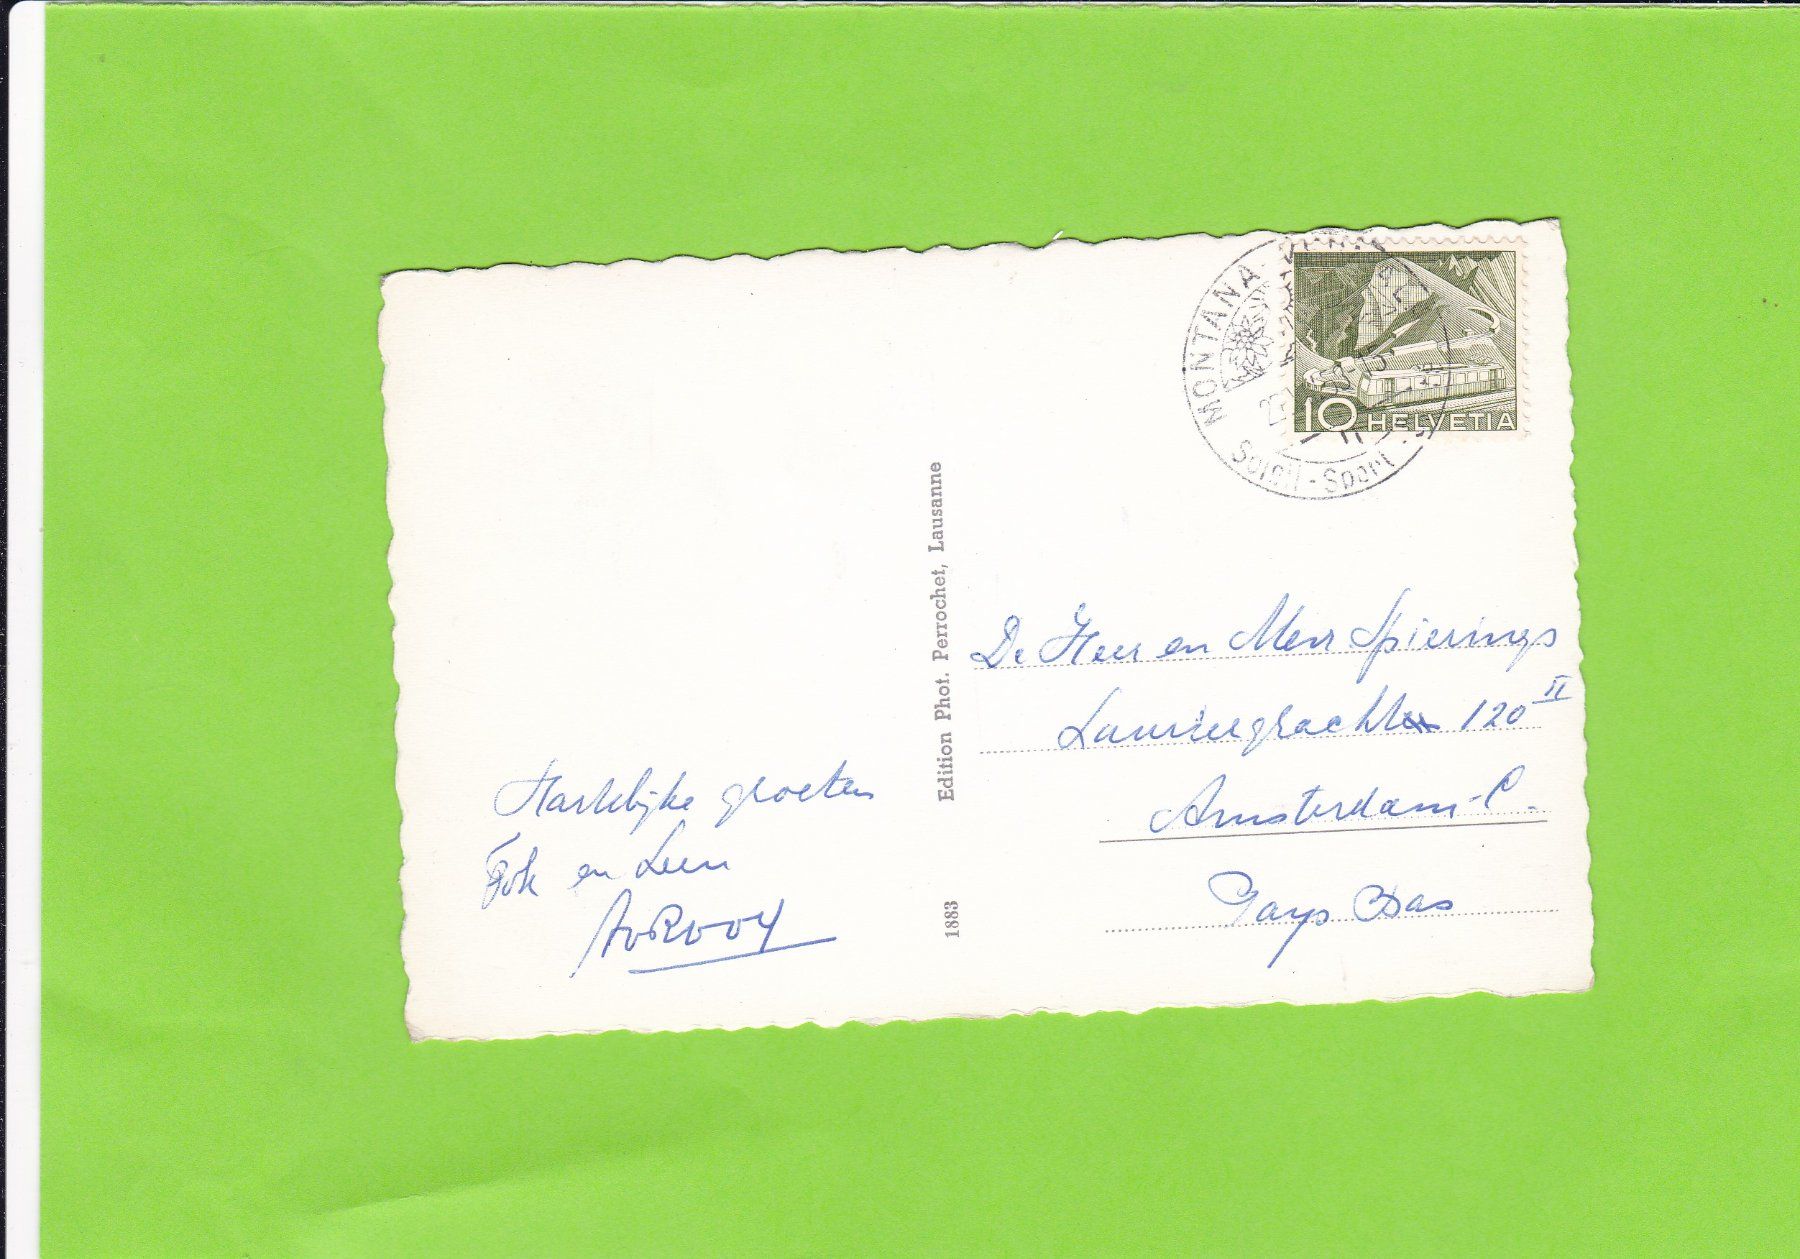 Hartelijke groeten
Fok en Leen
AvRooy
Edition Phot. Perrochet, Lausanne
1883
MONTANA-
Soleil - Sport
10 HELVETIA
De Heer en Mevr Spierings
Lauriergracht 120 II
Amsterdam-C.
Pays Bas